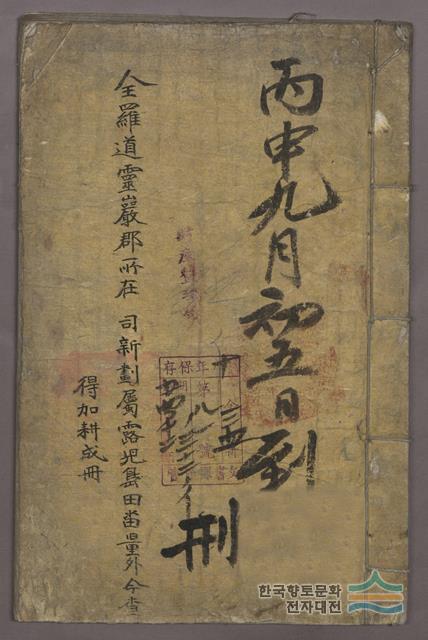 丙申九月初五日到
刑
全羅道靈巖郡所在 司新劃屬露児島田畓量外今查
得加耕成冊
한국향토문화
전자대전